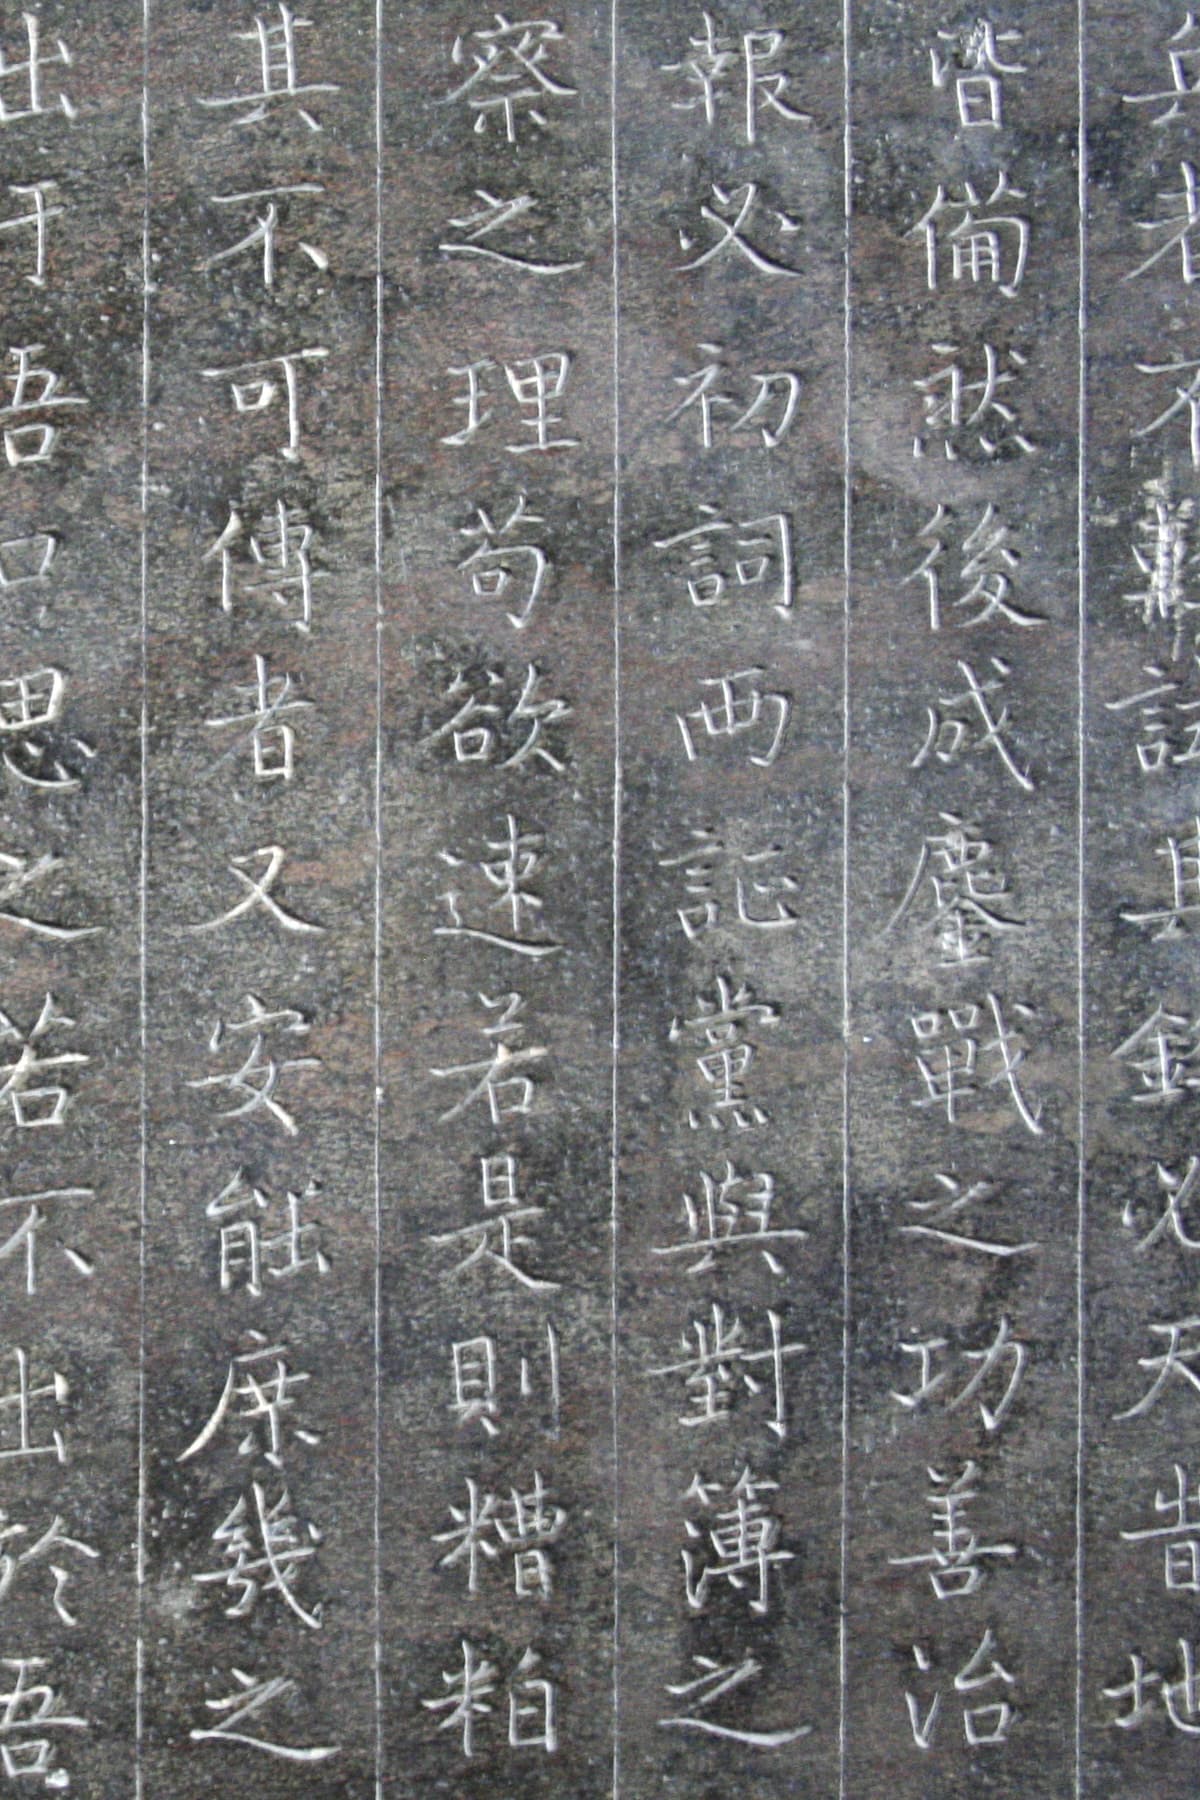 兵者不
其
必天
地
皆備然後成鏖戰之功善治
報必初詞兩証黨與對簿之
察之理苟欲速若是則糟粕
其不可傳者又安能庶幾之
出于吾口思之若不出於吾